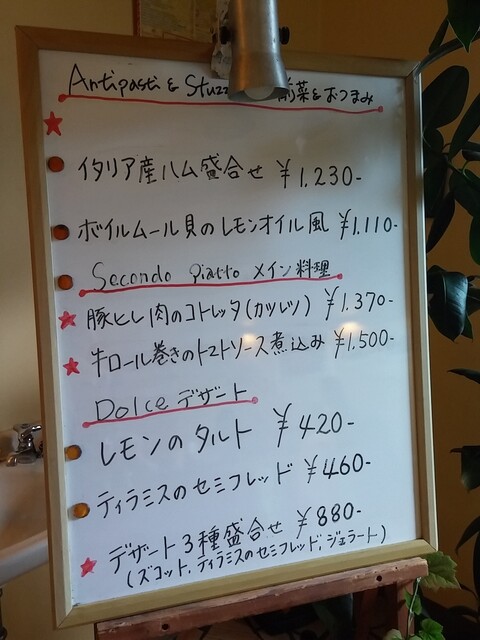 Antipasti & 前菜&おつまみ
イタリア産ハム盛合せ ¥1.230-
ボイルムール貝のレモンオイル風 ¥1.110-
Secondo Piatto メイン料理
豚ヒレ肉のコトレッタ(カツレツ) ¥1.370-
牛ロール巻きのトマトソース煮込み ¥1.500-
Dolce デザート
レモンのタルト ¥420-
ティラミスのセミフレッド ¥460-
デザート3種盛合せ ¥880-
(ズコット,ティラミスのセミフレッド,ジェラート)